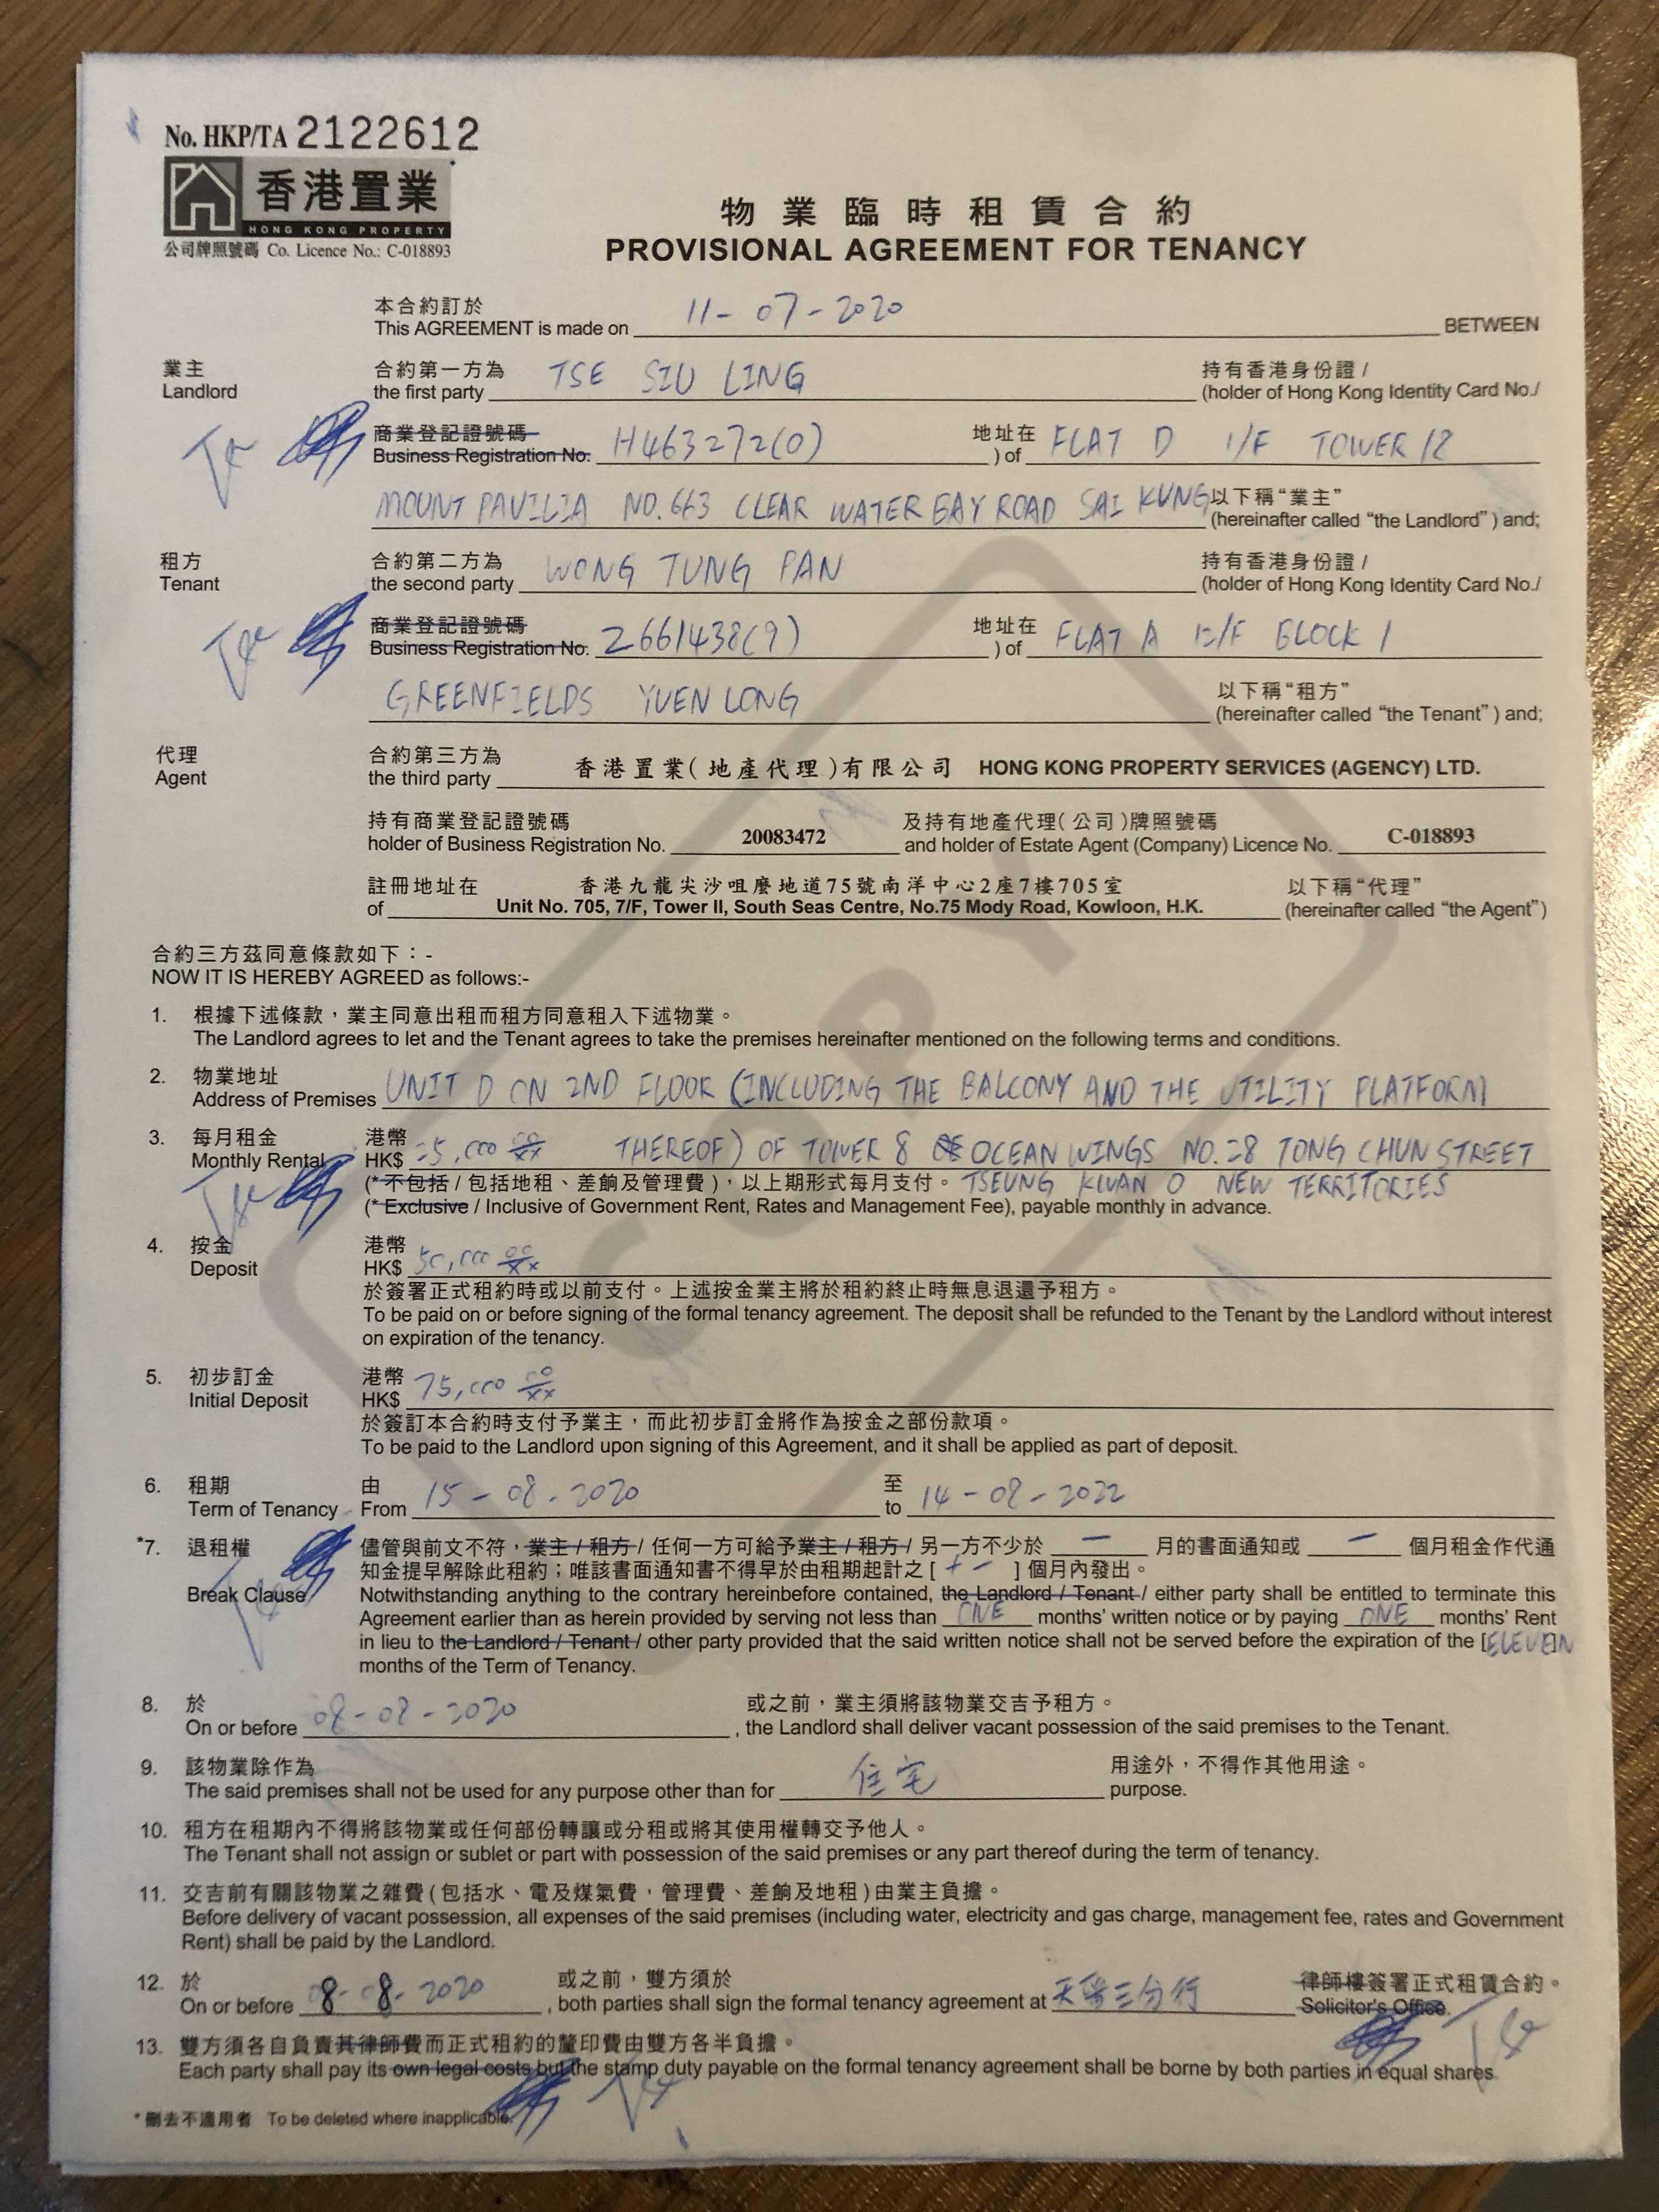 No. HKP/TA 2122612
香港置業
HONG KONG PROPERTY
公司牌照號碼 Co. Licence No.: C-018893
物業臨時租賃合約
PROVISIONAL AGREEMENT FOR TENANCY
本合約訂於
This AGREEMENT is made on 11-07-2020 BETWEEN
業主 合約第一方為 持有香港身份證 /
Landlord the first party TSE SIU LING (holder of Hong Kong Identity Card No./
商業登記證號碼 地址在
Business Registration No. H463272(0) ) of FLAT D 1/F TOWER 12
MOUNT PAVILIA NO.663 CLEAR WATER BAY ROAD SAI KUNG 以下稱“業主”
(hereinafter called “the Landlord” ) and;
租方 合約第二方為 持有香港身份證 /
Tenant the second party WONG TUNG PAN (holder of Hong Kong Identity Card No./
商業登記證號碼 地址在
Business Registration No. Z661438(9) ) of FLAT A 12/F BLOCK 1
GREENFIELDS YUEN LONG 以下稱“租方”
(hereinafter called “the Tenant” ) and;
代理 合約第三方為
Agent the third party 香港置業(地產代理)有限公司 HONG KONG PROPERTY SERVICES (AGENCY) LTD.
持有商業登記證號碼 及持有地產代理(公司)牌照號碼
holder of Business Registration No. 20083472 and holder of Estate Agent (Company) Licence No. C-018893
註冊地址在 香港九龍尖沙咀麼地道75號南洋中心2座7樓705室 以下稱“代理”
of Unit No. 705, 7/F, Tower II, South Seas Centre, No.75 Mody Road, Kowloon, H.K. (hereinafter called “the Agent”)
合約三方茲同意條款如下：-
NOW IT IS HEREBY AGREED as follows:-
1. 根據下述條款，業主同意出租而租方同意租入下述物業。
The Landlord agrees to let and the Tenant agrees to take the premises hereinafter mentioned on the following terms and conditions.
2. 物業地址
Address of Premises UNIT D ON 2ND FLOOR (INCLUDING THE BALCONY AND THE UTILITY PLATFORM
3. 每月租金 港幣
Monthly Rental HK$ 25,000 00/xx THEREOF) OF TOWER 8 OCEAN WINGS NO.28 TONG CHUN STREET
(* 不包括 / 包括地租、差餉及管理費)，以上期形式每月支付。 TSEUNG KWAN O NEW TERRITORIES
(* Exclusive / Inclusive of Government Rent, Rates and Management Fee), payable monthly in advance.
4. 按金 港幣
Deposit HK$ 50,000 00/xx
於簽署正式租約時或以前支付。上述按金業主將於租約終止時無息退還予租方。
To be paid on or before signing of the formal tenancy agreement. The deposit shall be refunded to the Tenant by the Landlord without interest
on expiration of the tenancy.
5. 初步訂金 港幣
Initial Deposit HK$ 75,000 00/xx
於簽訂本合約時支付予業主，而此初步訂金將作為按金之部份款項。
To be paid to the Landlord upon signing of this Agreement, and it shall be applied as part of deposit.
6. 租期 由 至
Term of Tenancy From 15-08-2020 to 14-08-2022
*7. 退租權 儘管與前文不符，業主 / 租方 / 任何一方可給予業主 / 租方 / 另一方不少於 一 月的書面通知或 一 個月租金作代通
知金提早解除此租約；唯該書面通知書不得早於由租期起計之 [ 十一 ] 個月內發出。
Break Clause Notwithstanding anything to the contrary hereinbefore contained, the Landlord / Tenant / either party shall be entitled to terminate this
Agreement earlier than as herein provided by serving not less than ONE months’ written notice or by paying ONE months’ Rent
in lieu to the Landlord / Tenant / other party provided that the said written notice shall not be served before the expiration of the [ELEVEN]
months of the Term of Tenancy.
8. 於 或之前，業主須將該物業交吉予租方。
On or before 08-08-2020 , the Landlord shall deliver vacant possession of the said premises to the Tenant.
9. 該物業除作為 用途外，不得作其他用途。
The said premises shall not be used for any purpose other than for 住宅 purpose.
10. 租方在租期內不得將該物業或任何部份轉讓或分租或將其使用權轉交予他人。
The Tenant shall not assign or sublet or part with possession of the said premises or any part thereof during the term of tenancy.
11. 交吉前有關該物業之雜費(包括水、電及煤氣費，管理費、差餉及地租)由業主負擔。
Before delivery of vacant possession, all expenses of the said premises (including water, electricity and gas charge, management fee, rates and Government
Rent) shall be paid by the Landlord.
12. 於 或之前，雙方須於 律師樓簽署正式租賃合約。
On or before 8-8-2020 , both parties shall sign the formal tenancy agreement at 三分行 Solicitor’s Office.
13. 雙方須各自負責其律師費而正式租約的釐印費由雙方各半負擔。
Each party shall pay its own legal costs but the stamp duty payable on the formal tenancy agreement shall be borne by both parties in equal shares.
* 刪去不適用者 To be deleted where inapplicable.
COPY